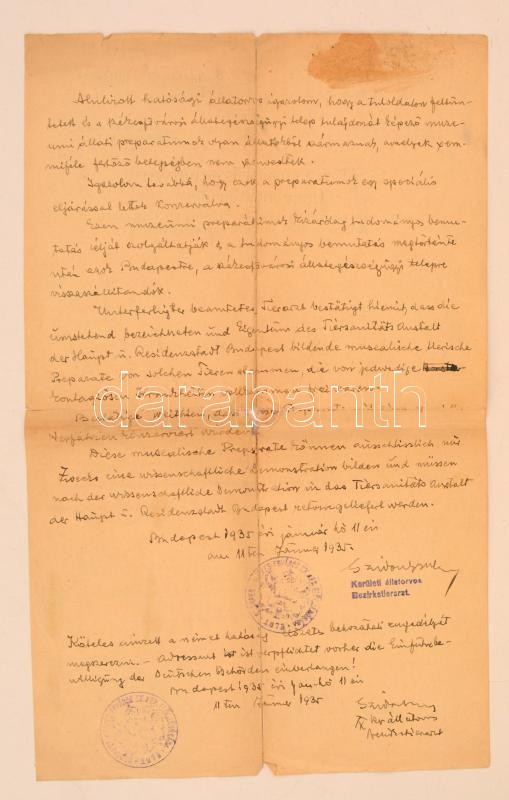 Alulirott hatósági állatorvos igazolom, hogy a túloldalon feltün-
tetett és a székesfővárosi állategészségügyi telep tulajdonát képező muze-
umi állati preparatumok olyan állatokból származnak, amelyek sem-
miféle fertőző betegségben nem szenvedtek.
Igazolom továbbá, hogy ezek a preparatumok egy speciális
eljárással lettek konzerválva.
Ezen muzeumi preparátumok kizárólag tudományos bemu-
tatás célját szolgálhatják és a tudományos bemutatás megtörténte
után azok Budapestre, a székesfővárosi állategészségügyi telepre
visszaszállitandók.
Unterfertigter beamteter Tierarzt bestätigt hiemit, dass die
umstehend bezeichneten und Eigentum des Tiersanitäts Anstalt
der Haupt u. Residenzstadt Budapest bildende musealische tierische
Preparate von solchen Tieren stammen, die von jedwelige
kontagiösen Krankheiten vollkommen frei waren.
darabanth
Verfahren konserviert wurden.
Diese musealische Preparate können ausschlisslich nur
Zwecke eine wissenschaftliche Demonstration bilden und müssen
nach der wissenschaftliche Demonstration in das Tiersanitäts Anstalt
der Haupt u. Residenzstadt Budapest retourgeliefert werden.
Budapest 1935 évi január hó 11 én
am 11 ten Jänner 1935.
Kerületi állatorvos
Bezirkstierarzt.
Köteles címzett a német hatóság előzetes behozatali engedélyét
megszerezni. – Adressant ist verpflichtet vorher die Einfuhrbe-
willigung der Deutschen Behörden einzuholen!
Budapest 1935 évi jan. hó 11 én
11 ten Jänner 1935
ker. állatorvos
Bezirkstierarzt